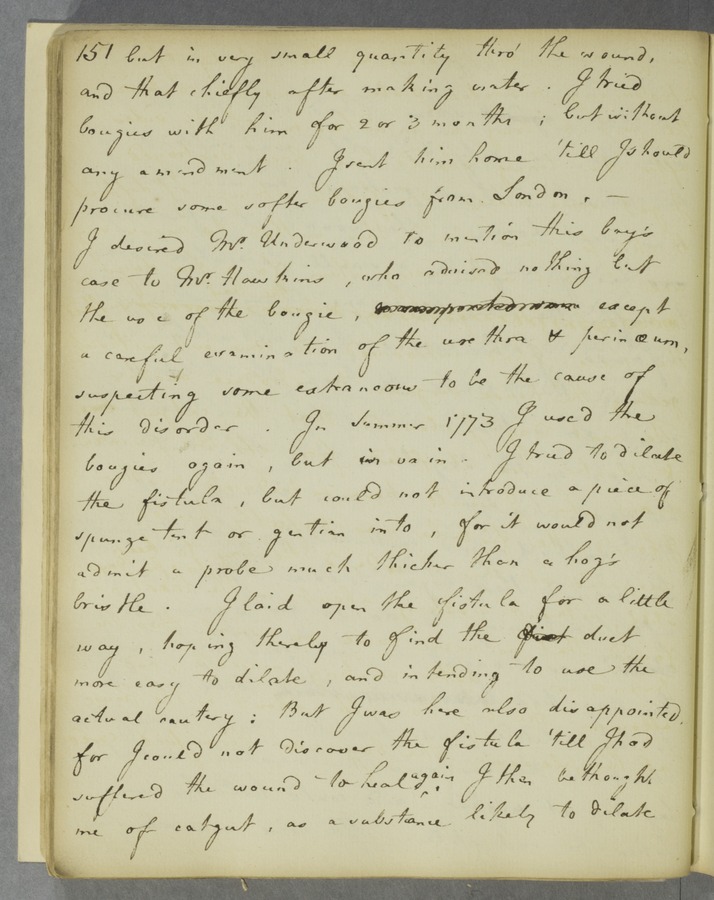 151 but in very small quantity thro' the wound,
and that chiefly after making water. I tried
bougies with him for 2 or 3 months; but without
any amendment. I sent him home 'till I should
procure some softer bougies from London. —
I desired Mr. Underwood to mention this boy's
case to Mr. Hawkins, who advised nothing but
the use of the bougie, except
a careful examination of the urethra & perinæum,
suspecting some extraneous to be the cause of
this disorder. In Summer 1773 I used the
bougies again, but in vain. I tried to dilate
the fistula, but could not introduce a piece of
spunge tent or gentian into, for it would not
admit a probe much thicker than a hog's
bristle. I laid open the fistula for a little
way, hoping thereby to find the duct
more easy to dilate, and intending to use the
actual cautery; But I was here also disappointed,
for I could not discover the fistula 'till I had
suffered the wound to heal again I then bethought
me of catgut, as a substance likely to dilate